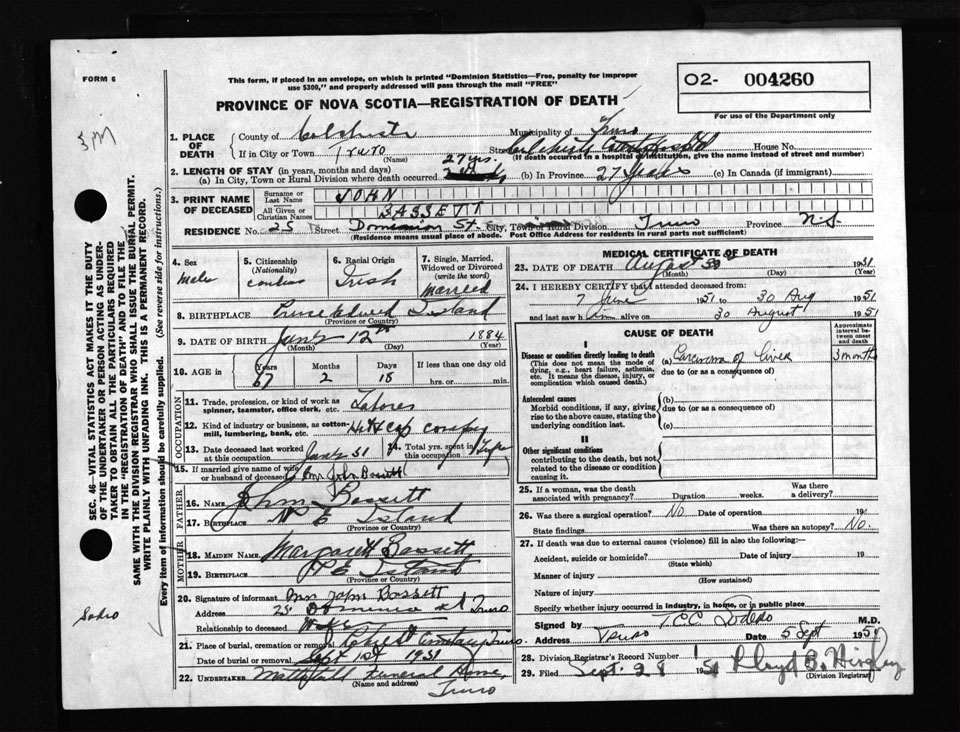 FORM 6
This form, if placed in an envelope, on which is printed "Dominion Statistics—Free, penalty for improper
use $300," and properly addressed will pass through the mail "FREE"
O2- 004260
For use of the Department only
PROVINCE OF NOVA SCOTIA—REGISTRATION OF DEATH
1. PLACE OF DEATH County of Colchester Municipality of Truro
If in City or Town Truro (Name) Street Colchester County House No.
(If death occurred in a hospital or institution, give the name instead of street and number)
2. LENGTH OF STAY (in years, months and days) 27 yrs.
(a) In City, Town or Rural Division where death occurred (b) In Province 27 Years (c) In Canada (if immigrant)
3. PRINT NAME OF DECEASED Surname or Last Name JOHN
All Given or Christian Names BASSETT
RESIDENCE No. 25 Street Dominion St. City, Town or Rural Division Truro Province N.S.
(Residence means usual place of abode. Post Office Address for residents in rural parts not sufficient)
4. Sex Male
5. Citizenship (Nationality)
6. Racial Origin Irish
7. Single, Married, Widowed or Divorced (write the word) Married
8. BIRTHPLACE Prince Edward Island
(Province or Country)
9. DATE OF BIRTH 12 1884
(Month) (Day) (Year)
10. AGE in Years 67 Months 2 Days 18 If less than one day old hrs. or min.
OCCUPATION
11. Trade, profession, or kind of work as spinner, teamster, office clerk, etc. Laborer
12. Kind of industry or business, as cotton-mill, lumbering, bank, etc.
13. Date deceased last worked at this occupation 51 14. Total yrs. spent in this occupation Life
15. If married give name of wife or husband of deceased Mrs John Bassett
FATHER
16. NAME John Bassett
17. BIRTHPLACE P E Island
(Province or Country)
MOTHER
18. MAIDEN NAME Margarett Bassett
19. BIRTHPLACE P E Island
(Province or Country)
20. Signature of informant Mrs John Bassett
Address 25 Dominion St Truro
Relationship to deceased Wife
21. Place of burial, cremation or removal Cemetary Truro
Date of burial or removal Sept 1st 1951
22. UNDERTAKER Mattatall Funeral Home,
(Name and address) Truro
MEDICAL CERTIFICATE OF DEATH
23. DATE OF DEATH August 30 1951
(Month) (Day) (Year)
24. I HEREBY CERTIFY that I attended deceased from:
7 June 1951 to 30 Aug 1951
and last saw him alive on 30 August 1951
CAUSE OF DEATH
Approximate interval between onset and death
I
Disease or condition directly leading to death (a) Carcinoma of liver 3 months
(This does not mean the mode of dying, e.g., heart failure, asthenia, etc. It means the disease, injury, or complication which caused death.)
due to (or as a consequence of)
Antecedent causes
Morbid conditions, if any, giving rise to the above cause, stating the underlying condition last.
(b)
due to (or as a consequence of)
(c)
II
Other significant conditions
contributing to the death, but not related to the disease or condition causing it.
25. If a woman, was the death associated with pregnancy? Duration weeks. Was there a delivery?
26. Was there a surgical operation? No Date of operation 19
State findings Was there an autopsy? No.
27. If death was due to external causes (violence) fill in also the following:—
Accident, suicide or homicide? Date of injury 19
(State which)
Manner of injury
(How sustained)
Nature of injury
Specify whether injury occurred in industry, in home, or in public place
Signed by M.D.
Address Truro Date 5 Sept 1951
28. Division Registrar's Record Number
29. Filed Sept. 28 1951 Lloyd
(Division Registrar)
SEC. 46—VITAL STATISTICS ACT MAKES IT THE DUTY
OF THE UNDERTAKER OR PERSON ACTING AS UNDER-
TAKER TO OBTAIN ALL THE PARTICULARS REQUIRED
IN THE "REGISTRATION OF DEATH" AND TO FILE THE
SAME WITH THE DIVISION REGISTRAR WHO SHALL ISSUE THE BURIAL PERMIT.
WRITE PLAINLY WITH UNFADING INK. THIS IS A PERMANENT RECORD.
Every item of information should be carefully supplied. (See reverse side for instructions.)